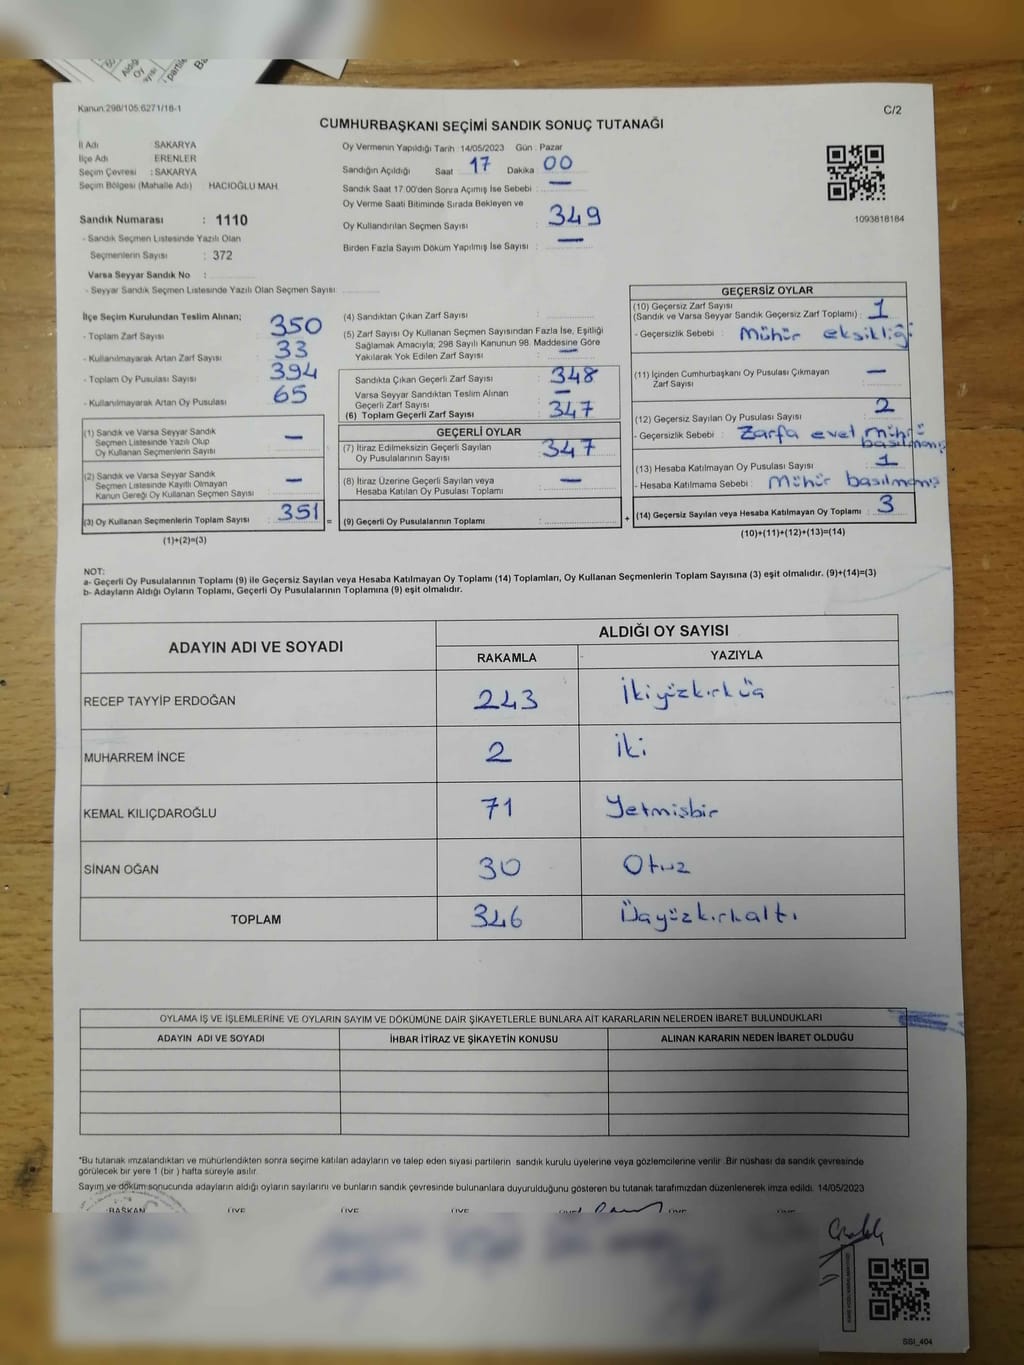 Kanun:298/105.6271/16-1
C/2
CUMHURBAŞKANI SEÇİMİ SANDIK SONUÇ TUTANAĞI
İl Adı SAKARYA
İlçe Adı ERENLER
Seçim Çevresi : SAKARYA
Seçim Bölgesi (Mahalle Adı) HACIOĞLU MAH.
Sandık Numarası : 1110
- Sandık Seçmen Listesinde Yazılı Olan
Seçmenlerin Sayısı : 372
Varsa Seyyar Sandık No :
- Seyyar Sandık Seçmen Listesinde Yazılı Olan Seçmen Sayısı:
Oy Vermenin Yapıldığı Tarih : 14/05/2023 Gün : Pazar
Sandığın Açıldığı Saat 17 Dakika 00
Sandık Saat 17.00'den Sonra Açımış İse Sebebi : —
Oy Verme Saati Bitiminde Sırada Bekleyen ve
Oy Kullandırılan Seçmen Sayısı : 349
Birden Fazla Sayım Döküm Yapılmış İse Sayısı : —
1093818184
İlçe Seçim Kurulundan Teslim Alınan;
- Toplam Zarf Sayısı : 350
- Kullanılmayarak Artan Zarf Sayısı : 33
- Toplam Oy Pusulası Sayısı : 394
- Kullanılmayarak Artan Oy Pusulası : 65
(1) Sandık ve Varsa Seyyar Sandık
Seçmen Listesinde Yazılı Olup
Oy Kullanan Seçmenlerin Sayısı : —
(2) Sandık ve Varsa Seyyar Sandık
Seçmen Listesinde Kayıtlı Olmayan
Kanun Gereği Oy Kullanan Seçmen Sayısı : —
(3) Oy Kullanan Seçmenlerin Toplam Sayısı : 351 =
(1)+(2)=(3)
(4) Sandıktan Çıkan Zarf Sayısı :
(5) Zarf Sayısı Oy Kullanan Seçmen Sayısından Fazla İse, Eşitliği
Sağlamak Amacıyla; 298 Sayılı Kanunun 98. Maddesine Göre
Yakılarak Yok Edilen Zarf Sayısı : —
Sandıkta Çıkan Geçerli Zarf Sayısı : 348
Varsa Seyyar Sandıktan Teslim Alınan
Geçerli Zarf Sayısı : —
(6) Toplam Geçerli Zarf Sayısı : 347
GEÇERLİ OYLAR
(7) İtiraz Edilmeksizin Geçerli Sayılan
Oy Pusulalarının Sayısı : 347
(8) İtiraz Üzerine Geçerli Sayılan veya
Hesaba Katılan Oy Pusulası Toplamı : —
(9) Geçerli Oy Pusulalarının Toplamı : +
GEÇERSİZ OYLAR
(10) Geçersiz Zarf Sayısı
(Sandık ve Varsa Seyyar Sandık Geçersiz Zarf Toplamı) : 1
- Geçersizlik Sebebi : Mühür eksikliği
(11) İçinden Cumhurbaşkanı Oy Pusulası Çıkmayan
Zarf Sayısı : —
(12) Geçersiz Sayılan Oy Pusulası Sayısı : 2
- Geçersizlik Sebebi : Zarfa evet
(13) Hesaba Katılmayan Oy Pusulası Sayısı : 1
- Hesaba Katılmama Sebebi : Mühür
(14) Geçersiz Sayılan veya Hesaba Katılmayan Oy Toplamı : 3
(10)+(11)+(12)+(13)=(14)
NOT:
a- Geçerli Oy Pusulalarının Toplamı (9) ile Geçersiz Sayılan veya Hesaba Katılmayan Oy Toplamı (14) Toplamları, Oy Kullanan Seçmenlerin Toplam Sayısına (3) eşit olmalıdır. (9)+(14)=(3)
b- Adayların Aldığı Oyların Toplamı, Geçerli Oy Pusulalarının Toplamına (9) eşit olmalıdır.
ADAYIN ADI VE SOYADI
ALDIĞI OY SAYISI
RAKAMLA YAZIYLA
RECEP TAYYİP ERDOĞAN 243 İkiyüzkırküç
MUHARREM İNCE 2 İki
KEMAL KILIÇDAROĞLU 71 Yetmisbir
SİNAN OĞAN 30 Otuz
TOPLAM 346 Üçyüzkırkaltı
OYLAMA İŞ VE İŞLEMLERİNE VE OYLARIN SAYIM VE DÖKÜMÜNE DAİR ŞİKAYETLERLE BUNLARA AİT KARARLARIN NELERDEN İBARET BULUNDUKLARI
ADAYIN ADI VE SOYADI İHBAR İTİRAZ VE ŞİKAYETİN KONUSU ALINAN KARARIN NEDEN İBARET OLDUĞU
*Bu tutanak imzalandıktan ve mühürlendikten sonra seçime katılan adayların ve talep eden siyasi partilerin sandık kurulu üyelerine veya gözlemcilerine verilir. Bir nüshası da sandık çevresinde
görülecek bir yere 1 (bir ) hafta süreyle asılır.
Sayım ve döküm sonucunda adayların aldığı oyların sayılarını ve bunların sandık çevresinde bulunanlara duyurulduğunu gösteren bu tutanak tarafımızdan düzenlenerek imza edildi. 14/05/2023
BAŞKAN ÜYE ÜYE ÜYE ÜYE ÜYE ÜYE
SSI_404